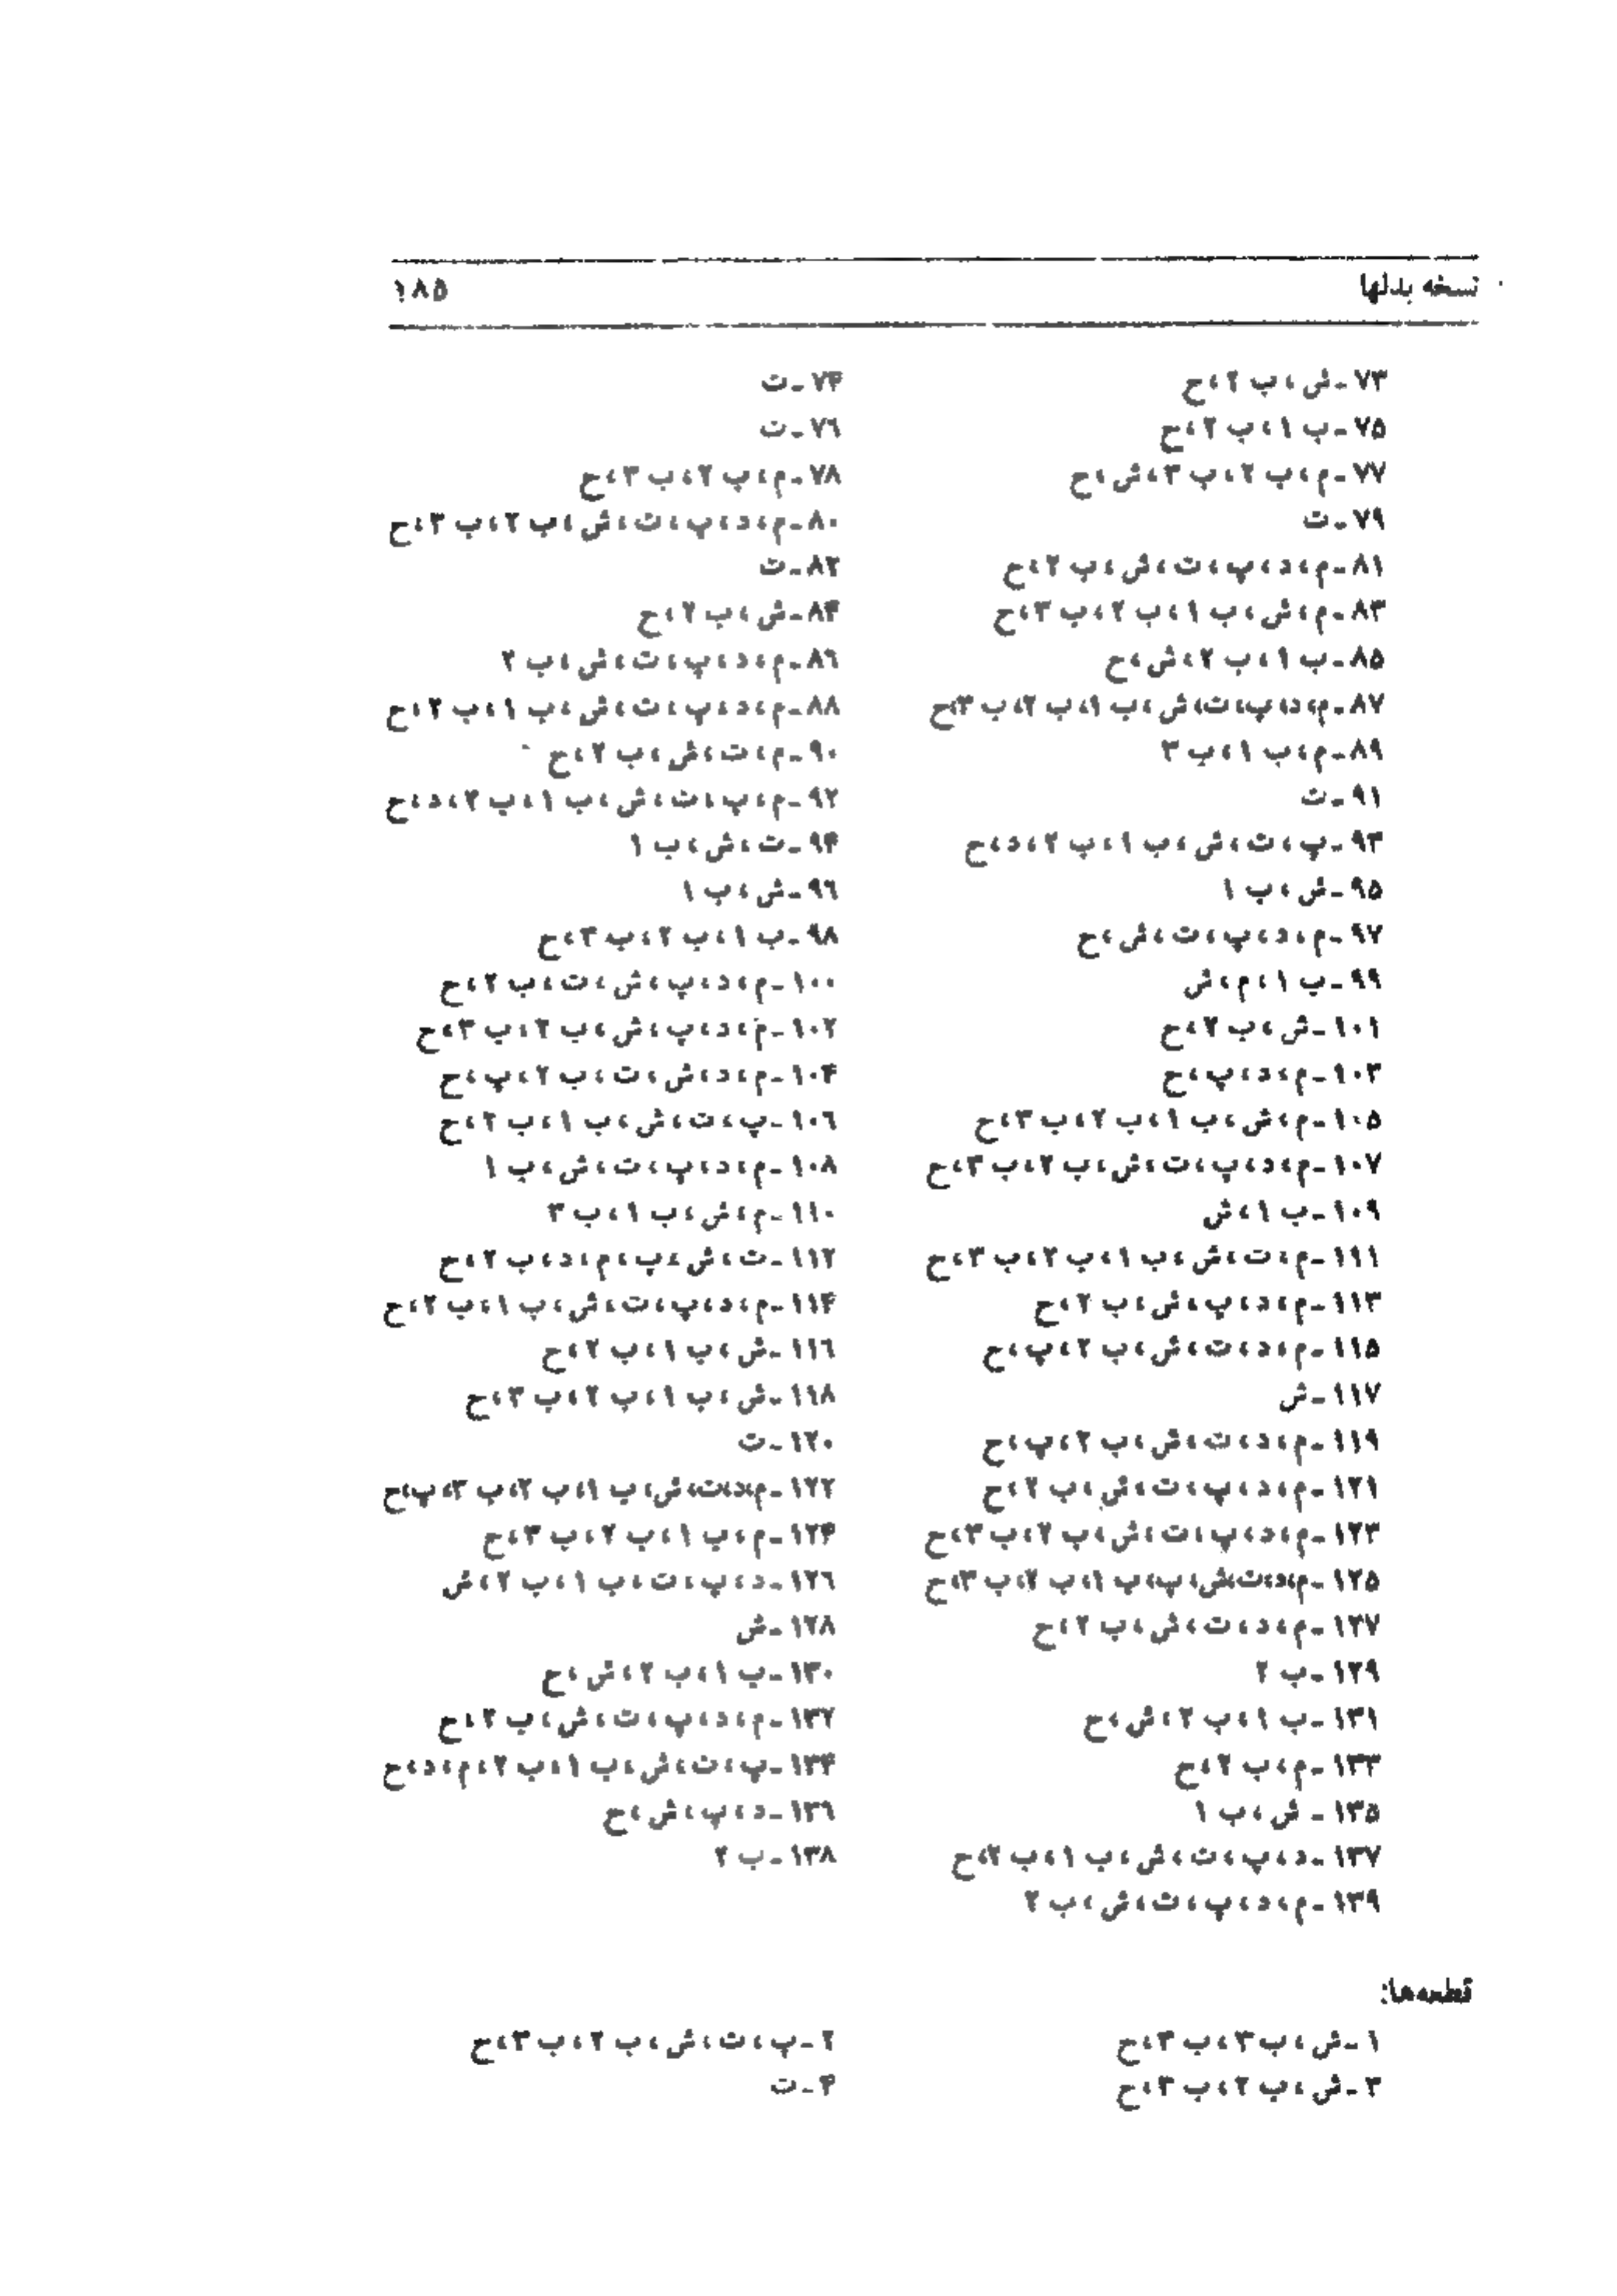 نسخه بدلها ۱۸۵
۷۳ـ ش، ب ۲، ح ۷۴ـ ت
۷۵ـ ب ۱، ب ۲، ح ۷۶ـ ت
۷۷ـ م، ب ۲، ب ۳، ش، ح ۷۸ـ م، پ ۲، ب ۳، ح
۷۹ـ ت ۸۰ـ م، د، پ، ت، ش، ب ۲، ب ۳، ح
۸۱ـ م، د، پ، ت، ش، ب ۲، ح ۸۲ـ ت
۸۳ـ م، ش، ب ۱، ب ۲، ب ۳، ح ۸۴ـ ش، ب ۲، ح
۸۵ـ ب ۱، ب ۲، ش، ح ۸۶ـ م، د، پ، ت، ش، ب ۲
۸۷ـ م، د، پ، ت، ش، ب ۱، ب ۲، ب ۳، ح ۸۸ـ م، د، پ، ت، ش، ب ۱، ب ۲، ح
۸۹ـ م، ب ۱، ب ۳ ۹۰ـ م، ت، ش، ب ۲، ح
۹۱ـ ت ۹۲ـ م، پ، ت، ش، ب ۱، ب ۲، د، ح
۹۳ـ پ، ت، ش، ب ۱، ب ۲، د، ح ۹۴ـ ت، ش، ب ۱
۹۵ـ ش، ب ۱ ۹۶ـ ش، ب ۱
۹۷ـ م، د، پ، ت، ش، ح ۹۸ـ ب ۱، ب ۲، ب ۳، ح
۹۹ـ ب ۱، م، ش ۱۰۰ـ م، د، پ، ش، ت، ب ۲، ح
۱۰۱ـ ش، ب ۲، ح ۱۰۲ـ م، د، پ، ش، ب ۲، ب ۳، ح
۱۰۳ـ م، د، پ، ح ۱۰۴ـ م، د، ش، ت، ب ۲، پ، ح
۱۰۵ـ م، ش، ب ۱، ب ۲، ب ۳، ح ۱۰۶ـ پ، ت، ش، ب ۱، ب ۲، ح
۱۰۷ـ م، د، پ، ت، ش، ب ۲، ب ۳، ح ۱۰۸ـ م، د، پ، ت، ش، ب ۱
۱۰۹ـ ب ۱، ش ۱۱۰ـ م، ش، ب ۱، ب ۳
۱۱۱ـ م، ت، ش، ب ۱، ب ۲، ب ۳، ح ۱۱۲ـ ت، ش، پ، م، د، ب ۲، ح
۱۱۳ـ م، د، پ، ش، ب ۲، ح ۱۱۴ـ م، د، پ، ت، ش، ب ۱، ب ۲، ح
۱۱۵ـ م، د، ت، ش، ب ۲، پ، ح ۱۱۶ـ ش، ب ۱، ب ۲، ح
۱۱۷ـ ش ۱۱۸ـ ش، ب ۱، ب ۲، ب ۳، ح
۱۱۹ـ م، د، ت، ش، ب ۲، پ، ح ۱۲۰ـ ت
۱۲۱ـ م، د، پ، ت، ش، ب ۲، ح ۱۲۲ـ م، د، ت، ش، ب ۱، ب ۲، ب ۳، پ، ح
۱۲۳ـ م، د، پ، ت، ش، ب ۲، ب ۳، ح ۱۲۴ـ م، ب ۱، ب ۲، ب ۳، ح
۱۲۵ـ م، د، ت، ش، پ، ب ۱، ب ۲، ب ۳، ح ۱۲۶ـ د، پ، ت، ب ۱، ب ۲، ش
۱۲۷ـ م، د، ت، ش، ب ۲، ح ۱۲۸ـ ش
۱۲۹ـ ب ۲ ۱۳۰ـ ب ۱، ب ۲، ش، ح
۱۳۱ـ ب ۱، ب ۲، ش، ح ۱۳۲ـ م، د، پ، ت، ش، ب ۲، ح
۱۳۳ـ م، ب ۲، ح ۱۳۴ـ پ، ت، ش، ب ۱، ب ۲، م، د، ح
۱۳۵ـ ش، ب ۱ ۱۳۶ـ د، پ، ش، ح
۱۳۷ـ د، پ، ت، ش، ب ۱، ب ۲، ح ۱۳۸ـ ب ۲
۱۳۹ـ م، د، پ، ت، ش، ب ۲
قطعه‌ها:
۱ـ ش، ب ۳، ب ۳، ح ۲ـ پ، ت، ش، ب ۲، ب ۳، ح
۳ـ ش، ب ۲، ب ۳، ح ۴ـ ت